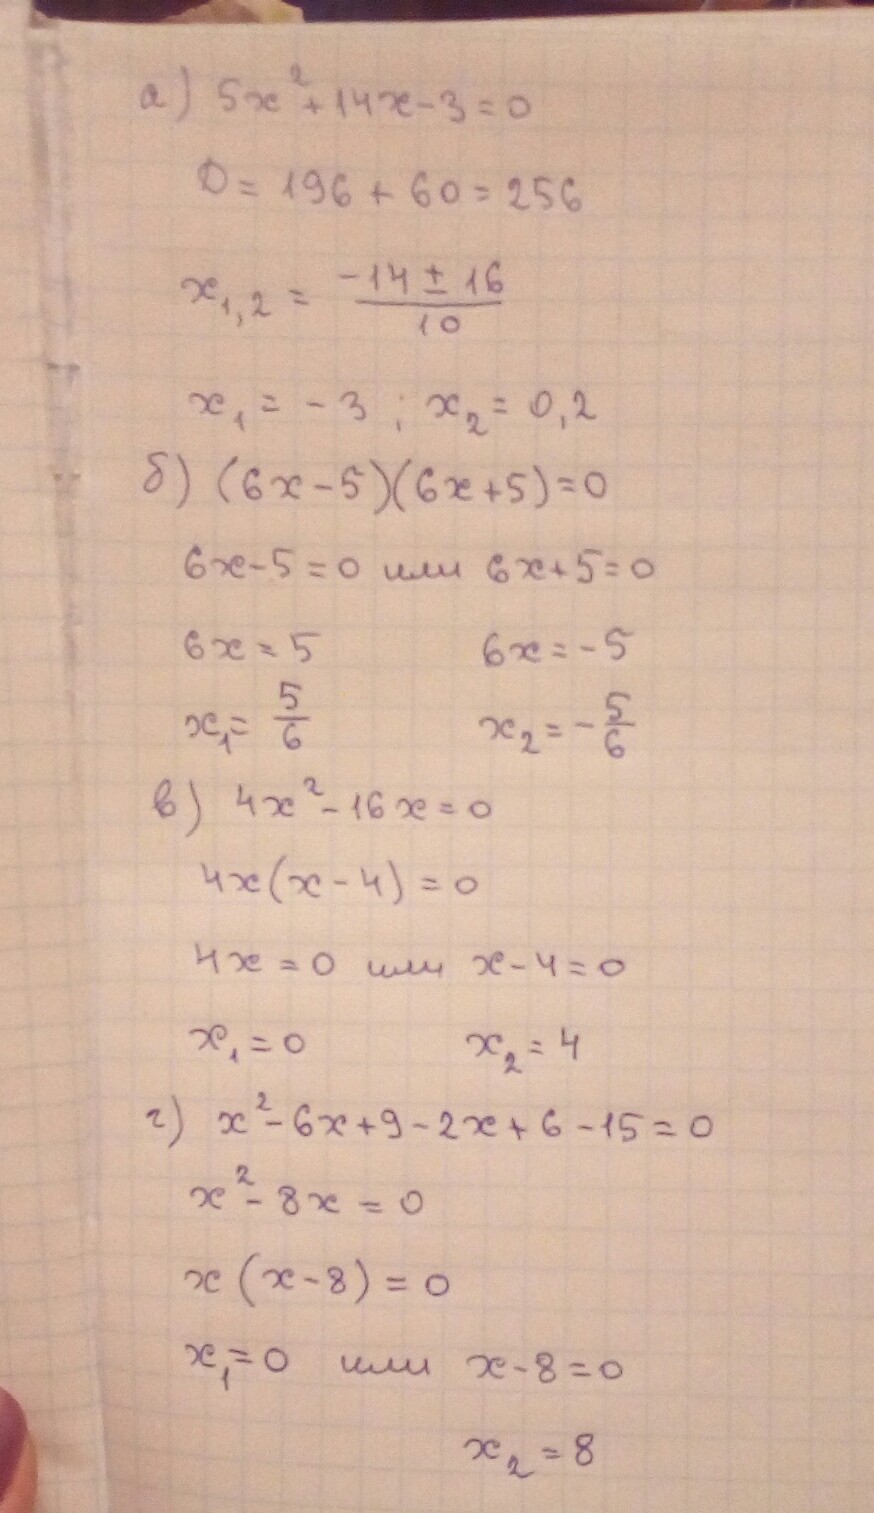 а) 5x² + 14x - 3 = 0
D = 196 + 60 = 256
x₁,₂ = (-14 ± 16)/10
x₁ = -3 ; x₂ = 0,2
б) (6x - 5)(6x + 5) = 0
6x - 5 = 0 или 6x + 5 = 0
6x = 5 6x = -5
x₁ = 5/6 x₂ = -5/6
в) 4x² - 16x = 0
4x(x - 4) = 0
4x = 0 или x - 4 = 0
x₁ = 0 x₂ = 4
г) x² - 6x + 9 - 2x + 6 - 15 = 0
x² - 8x = 0
x(x - 8) = 0
x₁ = 0 или x - 8 = 0
x₂ = 8